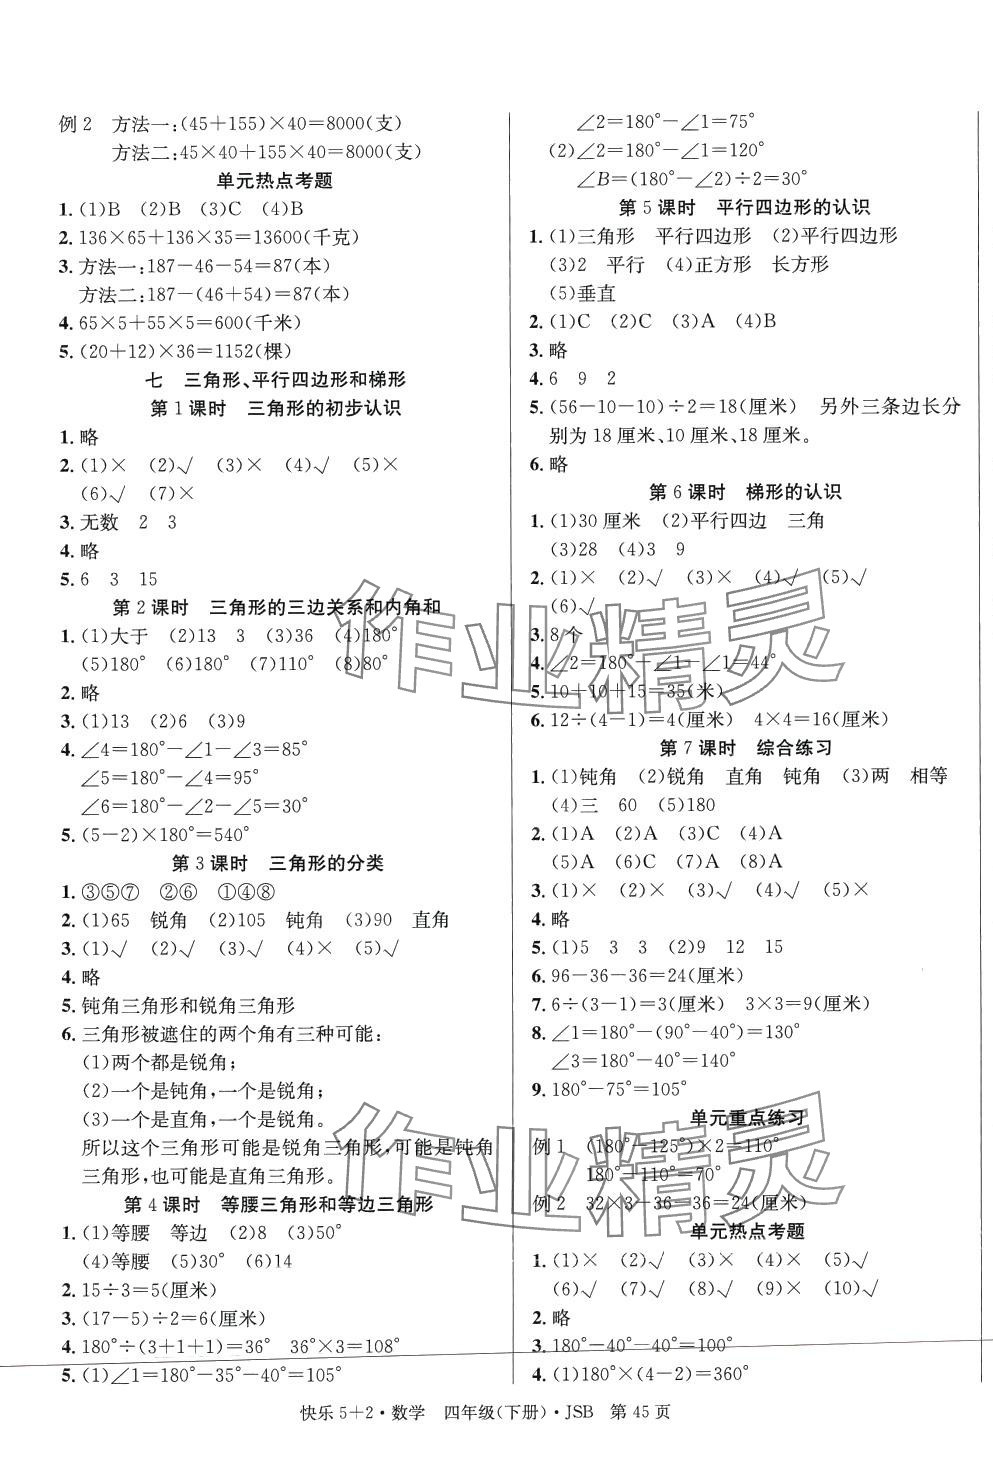 例2　方法一:(45+155)×40=8000(支)
方法二:45×40+155×40=8000(支)
单元热点考题
1. (1)B　(2)B　(3)C　(4)B
2. 136×65+136×35=13600(千克)
3. 方法一:187-46-54=87(本)
方法二:187-(46+54)=87(本)
4. 65×5+55×5=600(千米)
5. (20+12)×36=1152(棵)
七　三角形、平行四边形和梯形
第1课时　三角形的初步认识
1. 略
2. (1)×　(2)√　(3)×　(4)√　(5)×
(6)√　(7)×
3. 无数　2　3
4. 略
5. 6　3　15
第2课时　三角形的三边关系和内角和
1. (1)大于　(2)13　3　(3)36　(4)180°
(5)180°　(6)180°　(7)110°　(8)80°
2. 略
3. (1)13　(2)6　(3)9
4. ∠4=180°-∠1-∠3=85°
∠5=180°-∠4=95°
∠6=180°-∠2-∠5=30°
5. (5-2)×180°=540°
第3课时　三角形的分类
1. ③⑤⑦　②⑥　①④⑧
2. (1)65　锐角　(2)105　钝角　(3)90　直角
3. (1)√　(2)√　(3)√　(4)×　(5)√
4. 略
5. 钝角三角形和锐角三角形
6. 三角形被遮住的两个角有三种可能:
(1)两个都是锐角;
(2)一个是钝角,一个是锐角;
(3)一个是直角,一个是锐角。
所以这个三角形可能是锐角三角形,可能是钝角
三角形,也可能是直角三角形。
第4课时　等腰三角形和等边三角形
1. (1)等腰　等边　(2)8　(3)50°
(4)等腰　(5)30°　(6)14
2. 15÷3=5(厘米)
3. (17-5)÷2=6(厘米)
4. 180°÷(3+1+1)=36°　36°×3=108°
5. (1)∠1=180°-35°-40°=105°
∠2=180°-∠1=75°
(2)∠2=180°-∠1=120°
∠B=(180°-∠2)÷2=30°
第5课时　平行四边形的认识
1. (1)三角形　平行四边形　(2)平行四边形
(3)2　平行　(4)正方形　长方形
(5)垂直
2. (1)C　(2)C　(3)A　(4)B
3. 略
4. 6　9　2
5. (56-10-10)÷2=18(厘米)　另外三条边长分
别为18厘米、10厘米、18厘米。
6. 略
第6课时　梯形的认识
1. (1)30厘米　(2)平行四边　三角
(3)28　(4)3　9
2. (1)×　(2)√　(3)×　(4)√　(5)√
(6)√
3. 8个
4. ∠2=180°-∠1-∠1=44°
5. 10+10+15=35(米)
6. 12÷(4-1)=4(厘米)　4×4=16(厘米)
第7课时　综合练习
1. (1)钝角　(2)锐角　直角　钝角　(3)两　相等
(4)三　60　(5)180
2. (1)A　(2)A　(3)C　(4)A
(5)A　(6)C　(7)A　(8)B
3. (1)×　(2)×　(3)√　(4)√　(5)×
4. 略
5. (1)5　3　3　(2)9　12　15
6. 96-36-36=24(厘米)
7. 6÷(3-1)=3(厘米)　3×3=9(厘米)
8. ∠1=180°-(90°-40°)=130°
∠3=180°-40°=140°
9. 180°-75°=105°
单元重点练习
例1　(180°-125°)×2=110°
180°-110°=70°
例2　32×3-36-36=24(厘米)
单元热点考题
1. (1)×　(2)√　(3)×　(4)×　(5)√
(6)√　(7)√　(8)√　(9)×　(10)√
2. 略
3. 180°-40°-40°=100°
4. (1)180°×(4-2)=360°
快乐5+2·数学　四年级(下册)·JSB　第45页
作业精灵
作业精灵